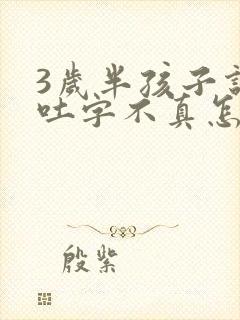 3歲半孩子
吐字不真怎
殷紫